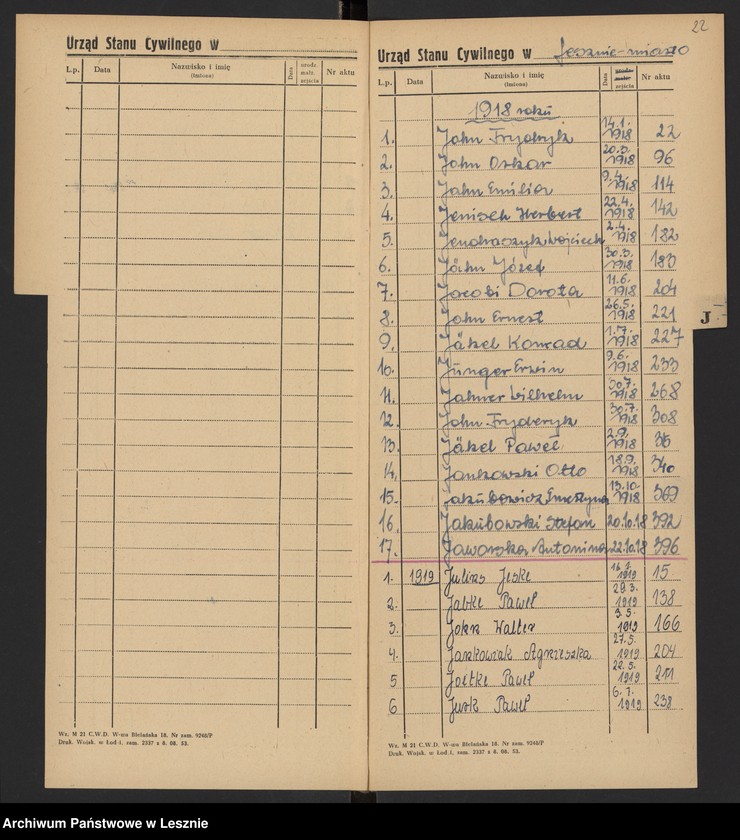 22
Urząd Stanu Cywilnego w
L.p. Data Nazwisko i imię (Imiona) Data urodz. małż. zejścia Nr aktu
Wz. M 21 C.W.D. W-wa Bielańska 18. Nr zam. 9248/P
Druk. Wojsk. w Łodzi, zam. 2337 z 8. 08. 53.
Urząd Stanu Cywilnego w Lesznie-miasto
L.p. Data Nazwisko i imię (Imiona) Data urodz. małż. zejścia Nr aktu
1918 roku
1. John Fryderyk 14.1. 1918 22
2. John Oskar 20.3. 1918 96
3. Jahn Emilia 9.4. 1918 114
4. Jenisch Herbert 22.4. 1918 142
5. Jendraczyk Wojciech 2.4. 1918 182
6. Jähn Józef 30.5. 1918 183
7. Jacobi Dorota 11.6. 1918 204
8. John Ernest 26.5. 1918 221
9. Jäkel Konrad 1.7. 1918 227
10. Jünger Erwin 9.6. 1918 233
11. Jahner Wilhelm 30.7. 1918 268
12. John Fryderyk 30.7. 1918 308
13. Jäkel Paweł 2.9. 1918
14. Jankowski Otto 18.9. 1918 340
15. Jakubowicz Ernestyna 13.10. 1918 369
16. Jakubowski Stefan 20.10.18 392
17. Jaworska Antonina 22.10.18 396
1. 1919 Julius Jeske 16.1. 1919 15
2. Jabke Paweł 29.3. 1919 138
3. Walter 9.5. 1919 166
4. Jaskowiak Agnieszka 27.5. 1919 204
5 Joltke Paweł 22.5. 1919 211
6 Jusk Paweł 6.7. 1919 238
J
Wz. M 21 C.W.D. W-wa Bielańska 18. Nr zam. 9248/P
Druk. Wojsk. w Łodzi, zam. 2337 z 8. 08. 53.
Archiwum Państwowe w Lesznie